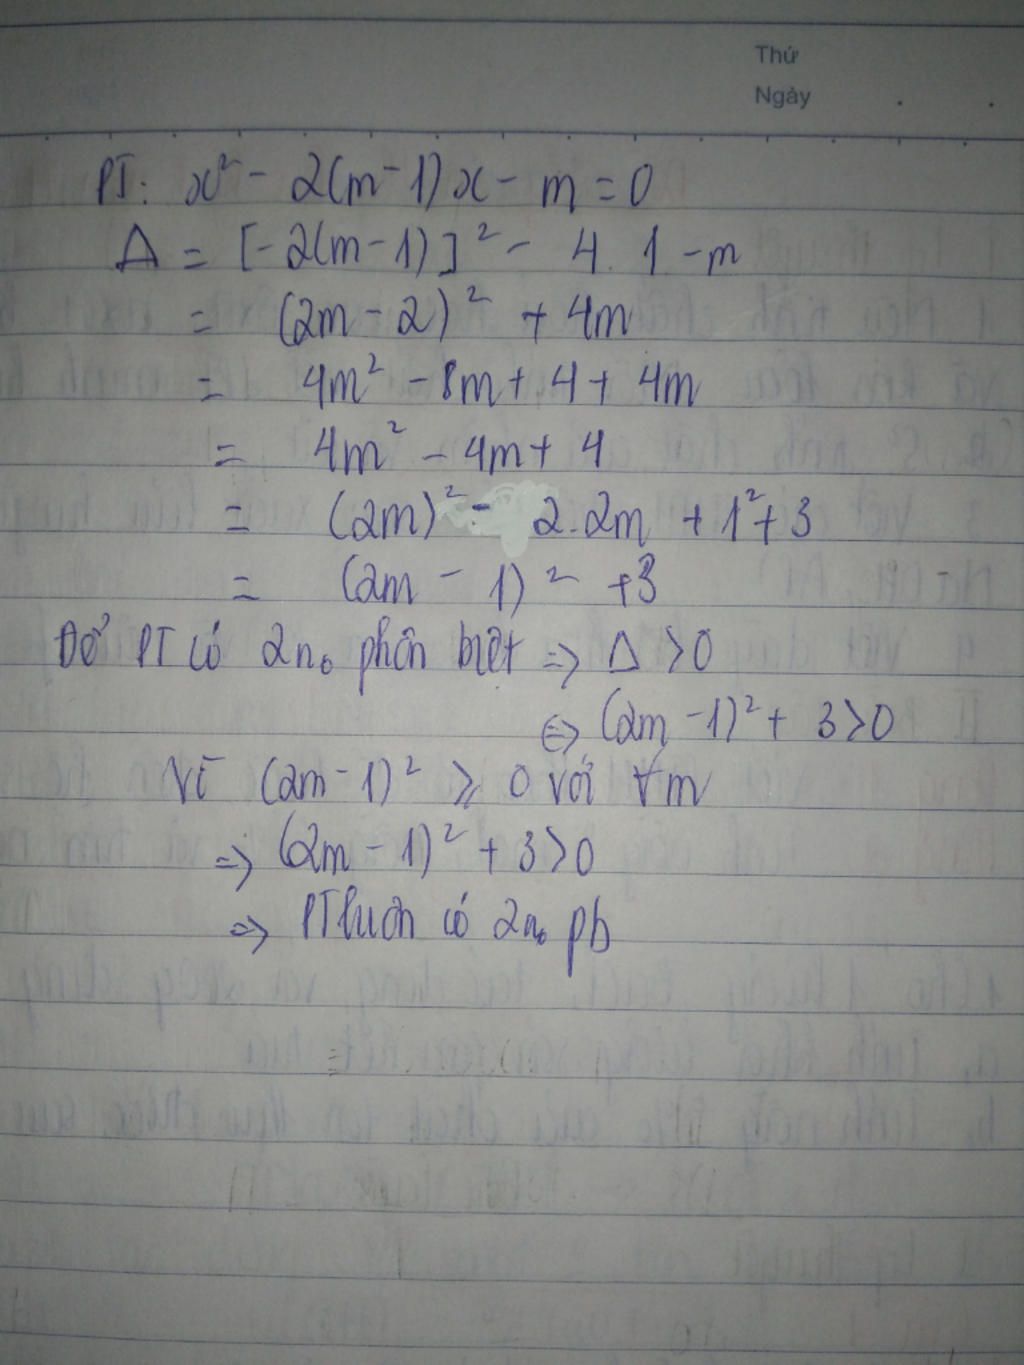 Thứ
Ngày
PT: x² - 2(m-1)x - m = 0
Δ = [-2(m-1)]² - 4. 1 -m
= (2m - 2)² + 4m
= 4m² - 8m + 4 + 4m
= 4m² - 4m + 4
= (2m)² - 2.2m + 1² + 3
= (2m - 1)² + 3
Để PT có 2n₀ phân biệt => Δ > 0
<=> (2m - 1)² + 3 > 0
Vì (2m - 1)² ≥ 0 với ∀m
=> (2m - 1)² + 3 > 0
=> PT luôn có 2n₀ pb